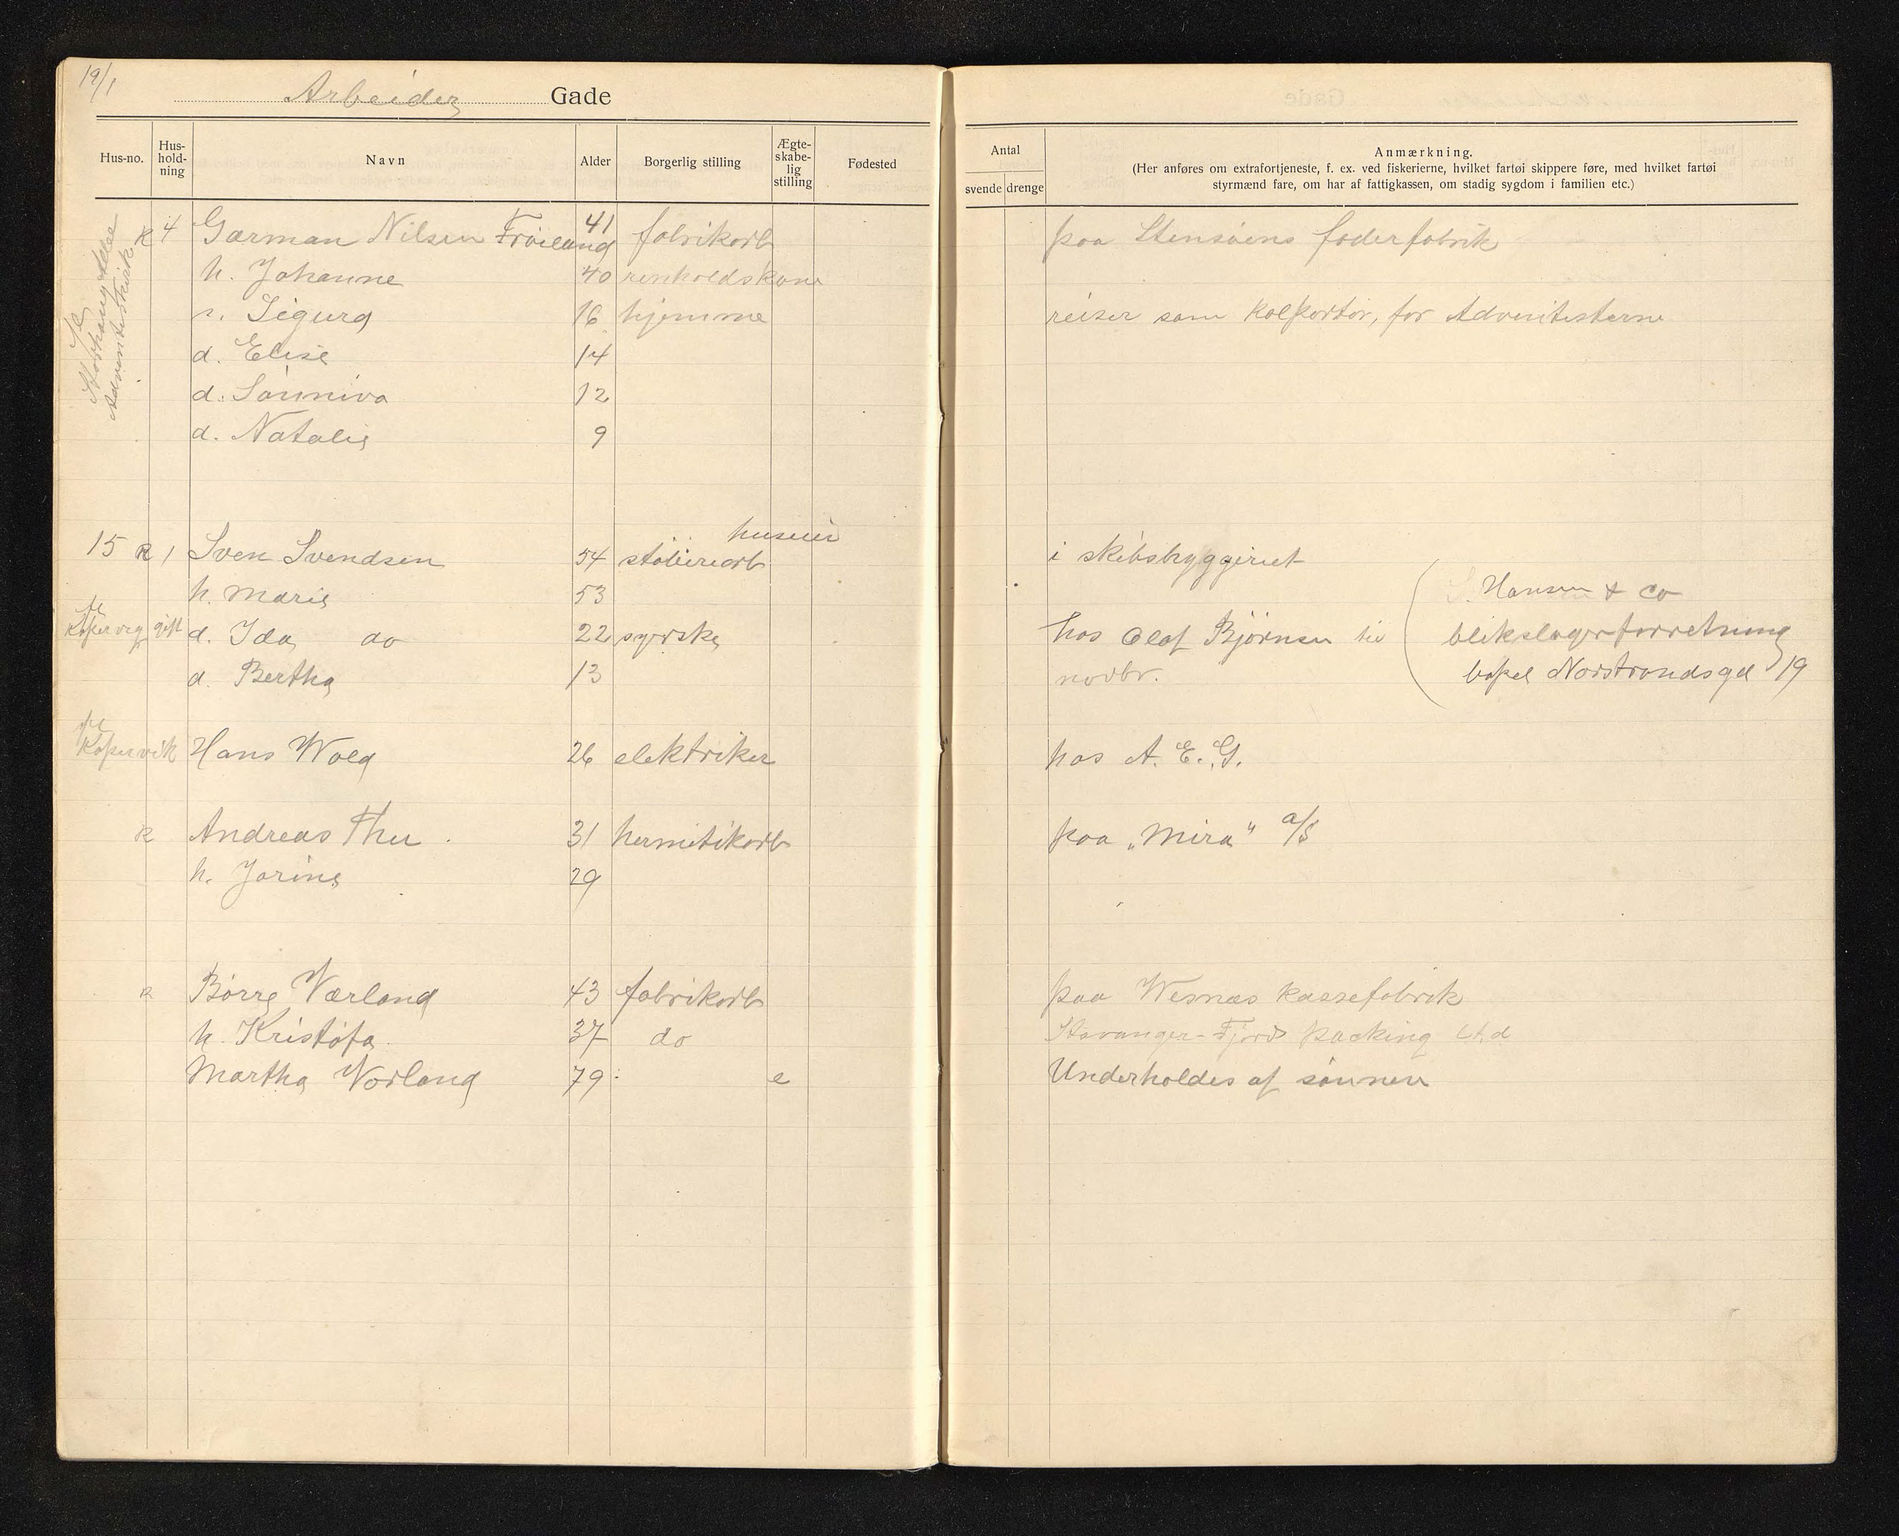 19/1
Arbeider Gade
Hus-no. Hus-hold-ning Navn Alder Borgerlig stilling Ægte-skabe-lig stilling Fødested
Antal
svende drenge
Anmærkning.
(Her anføres om extrafortjeneste, f. ex. ved fiskerierne, hvilket fartøi skippere føre, med hvilket fartøi
styrmænd fare, om har af fattigkassen, om stadig sygdom i familien etc.)
R 4 Garman Nilsen Frøiland 41 fabrikarb paa Stensøens foderfabrik
h. Johanne 40 renholdskone
s. Sigurd 16 hjemme reiser som kolportør, for Adventisterne
d. Elise 14
d. Sønniva 12
d. Natalie 9
Adventistkirk
huseier
15 R 1 Sven Svendsen 54 støberiarb i skibsbyggeriet
h. Marie 53
Hansen & Co
Kopervig gift d. Ida do 22 syerske hos Olaf Bjørnsen til blikslagerforretning
d. Bertha 13 novbr. bopel Norstrandsgd 19
til
Kopervik Hans Wold 26 elektriker hos A. E. G.
R Andreas Thu 31 hermetikarb paa „Mira" a/s
h. Jorine 29
R Børre Værland 43 fabrikarb paa Wesnæs kassefabrik
h. Kristofa 37 do Stavanger-Fjord packing Ltd
Martha Vorland 79 e Underholdes af sønnen